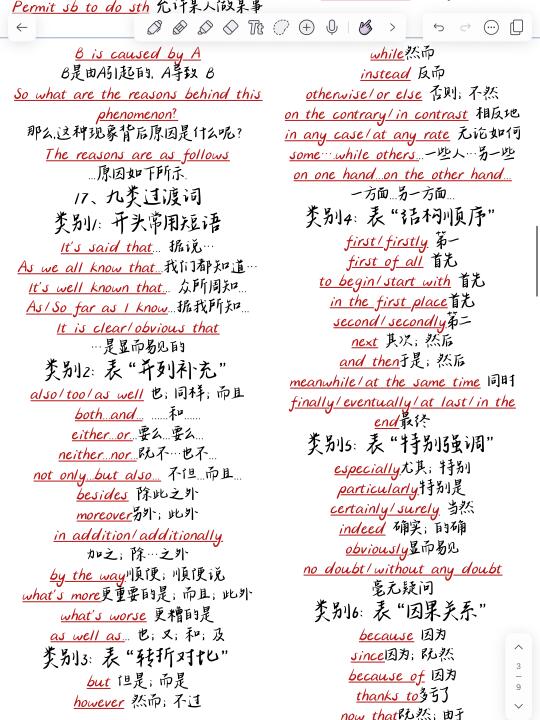 Permit sb to do sth 允许某人做某事
B is caused by A
B是由A引起的, A导致 B
So what are the reasons behind this
phenomenon?
那么,这种现象背后原因是什么呢?
The reasons are as follows
...原因如下所示.
17、九类过渡词
类别1: 开头常用短语
It's said that... 据说…
As we all know that...我们都知道…
It's well known that... 众所周知...
As/So far as I know...据我所知...
It is clear/obvious that
…是显而易见的
类别2: 表“并列补充”
also/too/as well 也; 同样; 而且
both...and... ......和......
either...or...要么...要么...
neither...nor...既不...也不...
not only...but also... 不但...而且...
besides 除此之外
moreover另外; 此外
in addition/additionally
加之; 除…之外
by the way顺便; 顺便说
what's more更重要的是; 而且; 此外
what's worse 更糟的是
as well as... 也; 又; 和; 及
类别3: 表“转折对比”
but 但是; 而是
however 然而; 不过
while然而
instead 反而
otherwise/or else 否则; 不然
on the contrary/in contrast 相反地
in any case/at any rate 无论如何
some...while others...一些人...另一些
on one hand...on the other hand...
一方面...另一方面...
类别4: 表“结构顺序”
first/firstly 第一
first of all 首先
to begin/start with 首先
in the first place首先
second/secondly第二
next 其次; 然后
and then于是; 然后
meanwhile/at the same time 同时
finally/eventually/at last/in the
end最终
类别5: 表“特别强调”
especially尤其; 特别
particularly特别是
certainly/surely 当然
indeed 确实; 的确
obviously显而易见
no doubt/without any doubt
毫无疑问
类别6: 表“因果关系”
because 因为
since因为; 既然
because of 因为
thanks to多亏了
now that既然; 由于
3
9